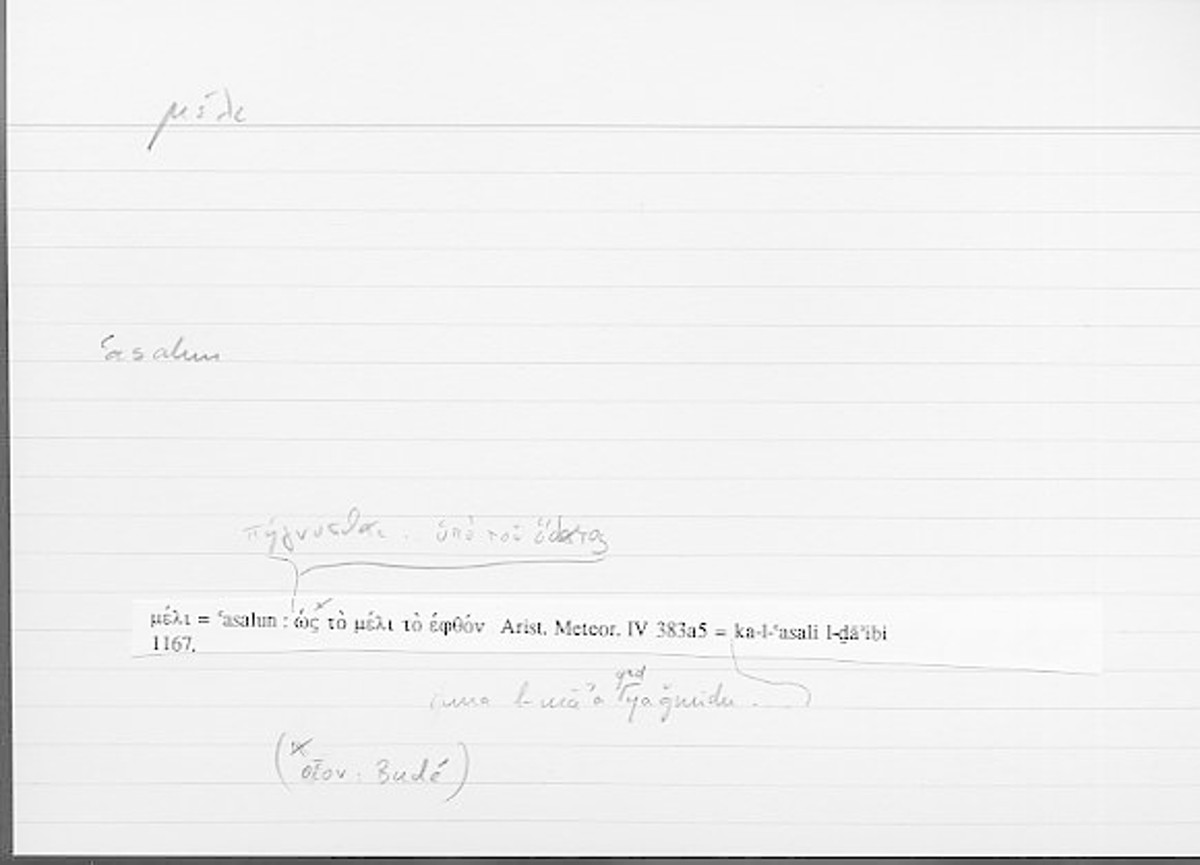 μέλι
ʿasalun
πήγνυσθαι . ὑπὸ τοῦ ὕδατος
μέλι = ʿasalun : ὡς τὸ μέλι τὸ ἑφθόν Arist. Meteor. IV 383a5 = ka-l-ʿasali l-ḏāʾibi
1167.
qad
inna l-māʾa yaǧmidu ...
(× οἷον : Budé)